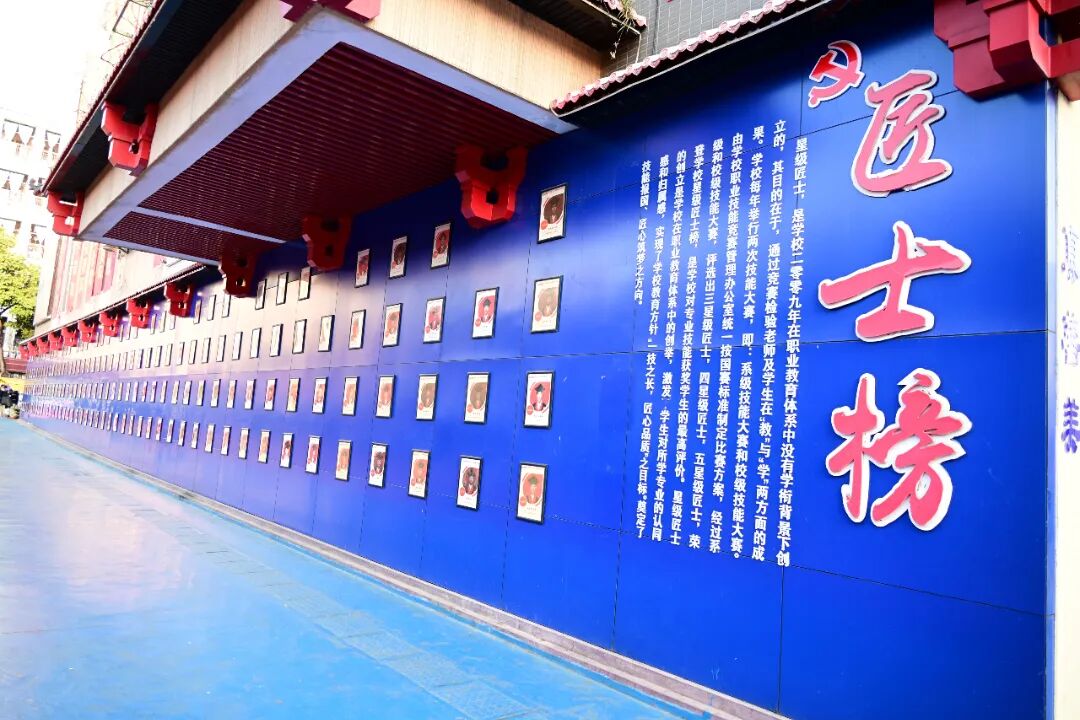 匠士榜
星级匠士，是学校二零零九年在职业教育体系中没有学衔背景下创
立的，其目的在于，通过竞赛检验老师及学生在“教”与“学”两方面的成
果。学校每年举行两次技能大赛，即：系级技能大赛和校级技能大赛。
由学校职业技能竞赛管理办公室统一按国赛标准制定比赛方案，经过系
级和校级技能大赛，评选出三星级匠士，四星级匠士，五星级匠士，荣
登学校星级匠士榜，是学校对专业技能获奖学生的最高评价。星级匠士
的创立是学校在职业教育体系中的创举，激发了学生对所学专业的认同
感和归属感，实现了学校教育方针“一技之长，匠心品质”之目标。奠定了
技能报国、匠心筑梦之方向。